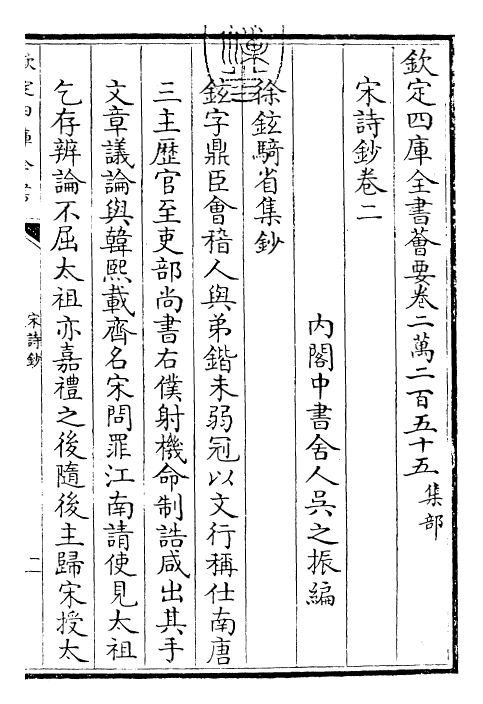 欽定四庫全書薈要卷二萬二百五十五集部
宋詩鈔卷二
內閣中書舍人吳之振編
徐鉉騎省集鈔
鉉字鼎臣會稽人與弟鍇未弱冠以文行稱仕南唐
三主歷官至吏部尚書右僕射機命制誥咸出其手
文章議論與韓熙載齊名宋問罪江南請使見太祖
乞存辨論不屈太祖亦嘉禮之後隨後主歸宋授太
欽定四庫全書
宋詩鈔
二